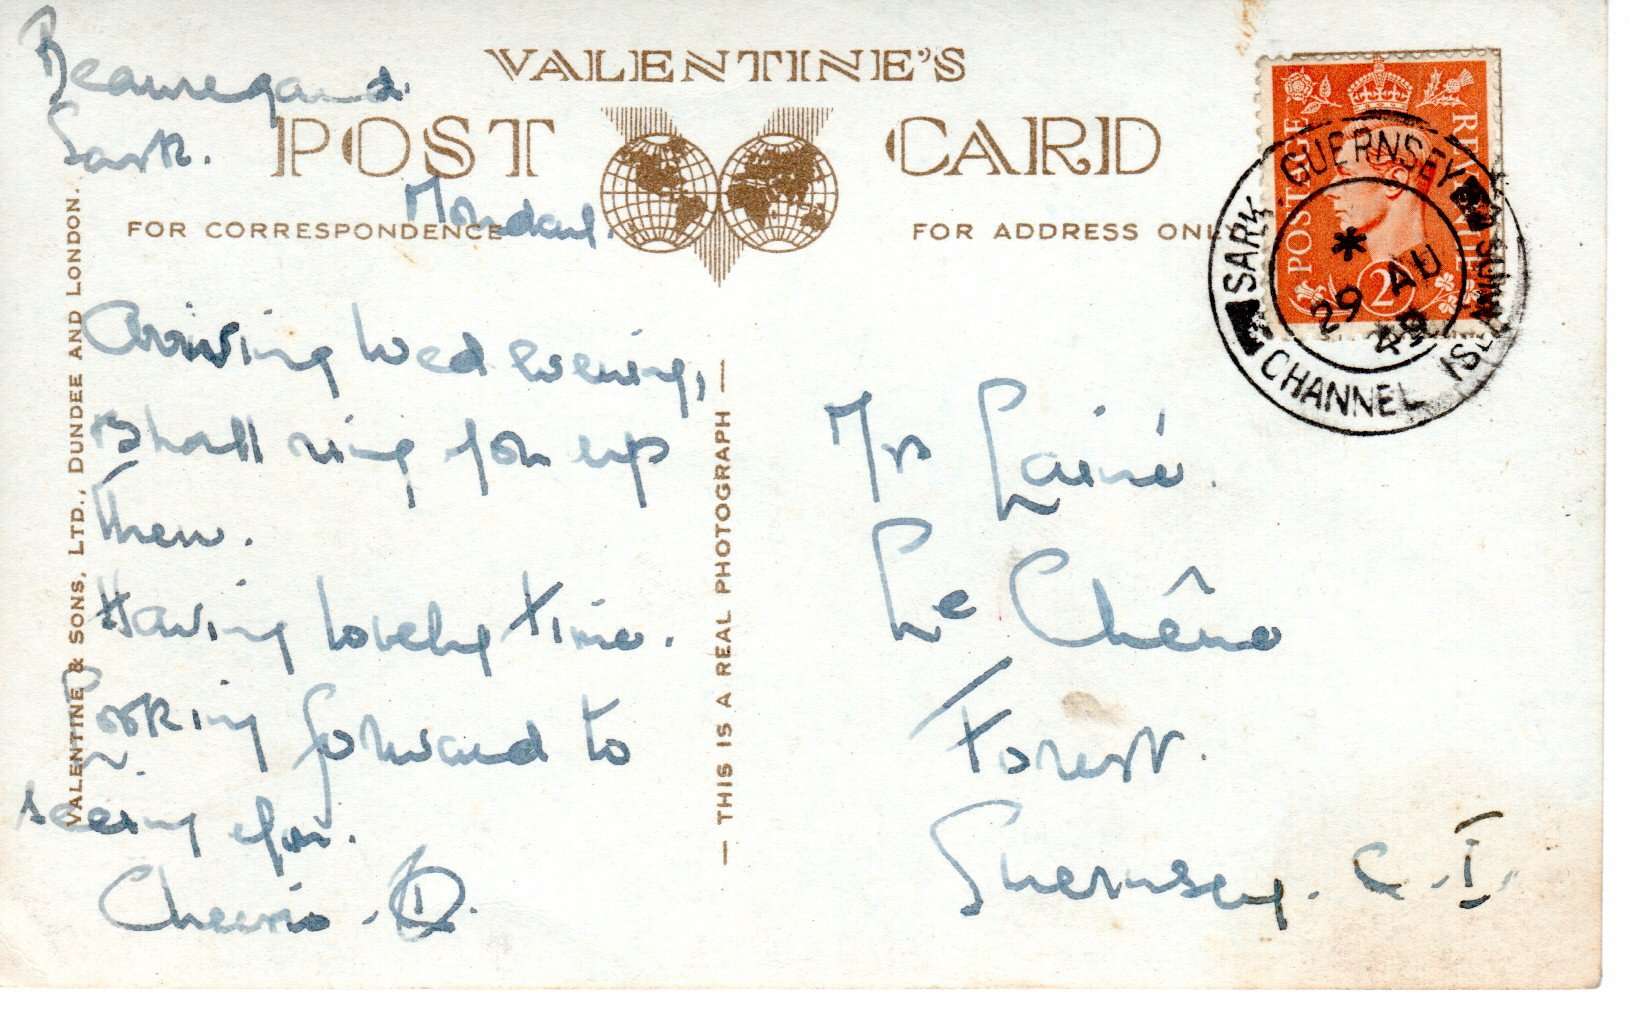 Beauregard.
Sark.
Monday.
VALENTINE'S
POST CARD
FOR CORRESPONDENCE
FOR ADDRESS ONLY
Arriving Wed evening,
Shall ring you up
then.
Having lovely time.
Looking forward to
seeing you.
Cheerio - D.
VALENTINE & SONS, LTD., DUNDEE AND LONDON.
— THIS IS A REAL PHOTOGRAPH —
POSTAGE REVENUE
2D
SARK . GUERNSEY
CHANNEL ISLANDS
*
29 AU
49
Mrs Lainé.
Le Chêne
Forest.
Guernsey. C.I.